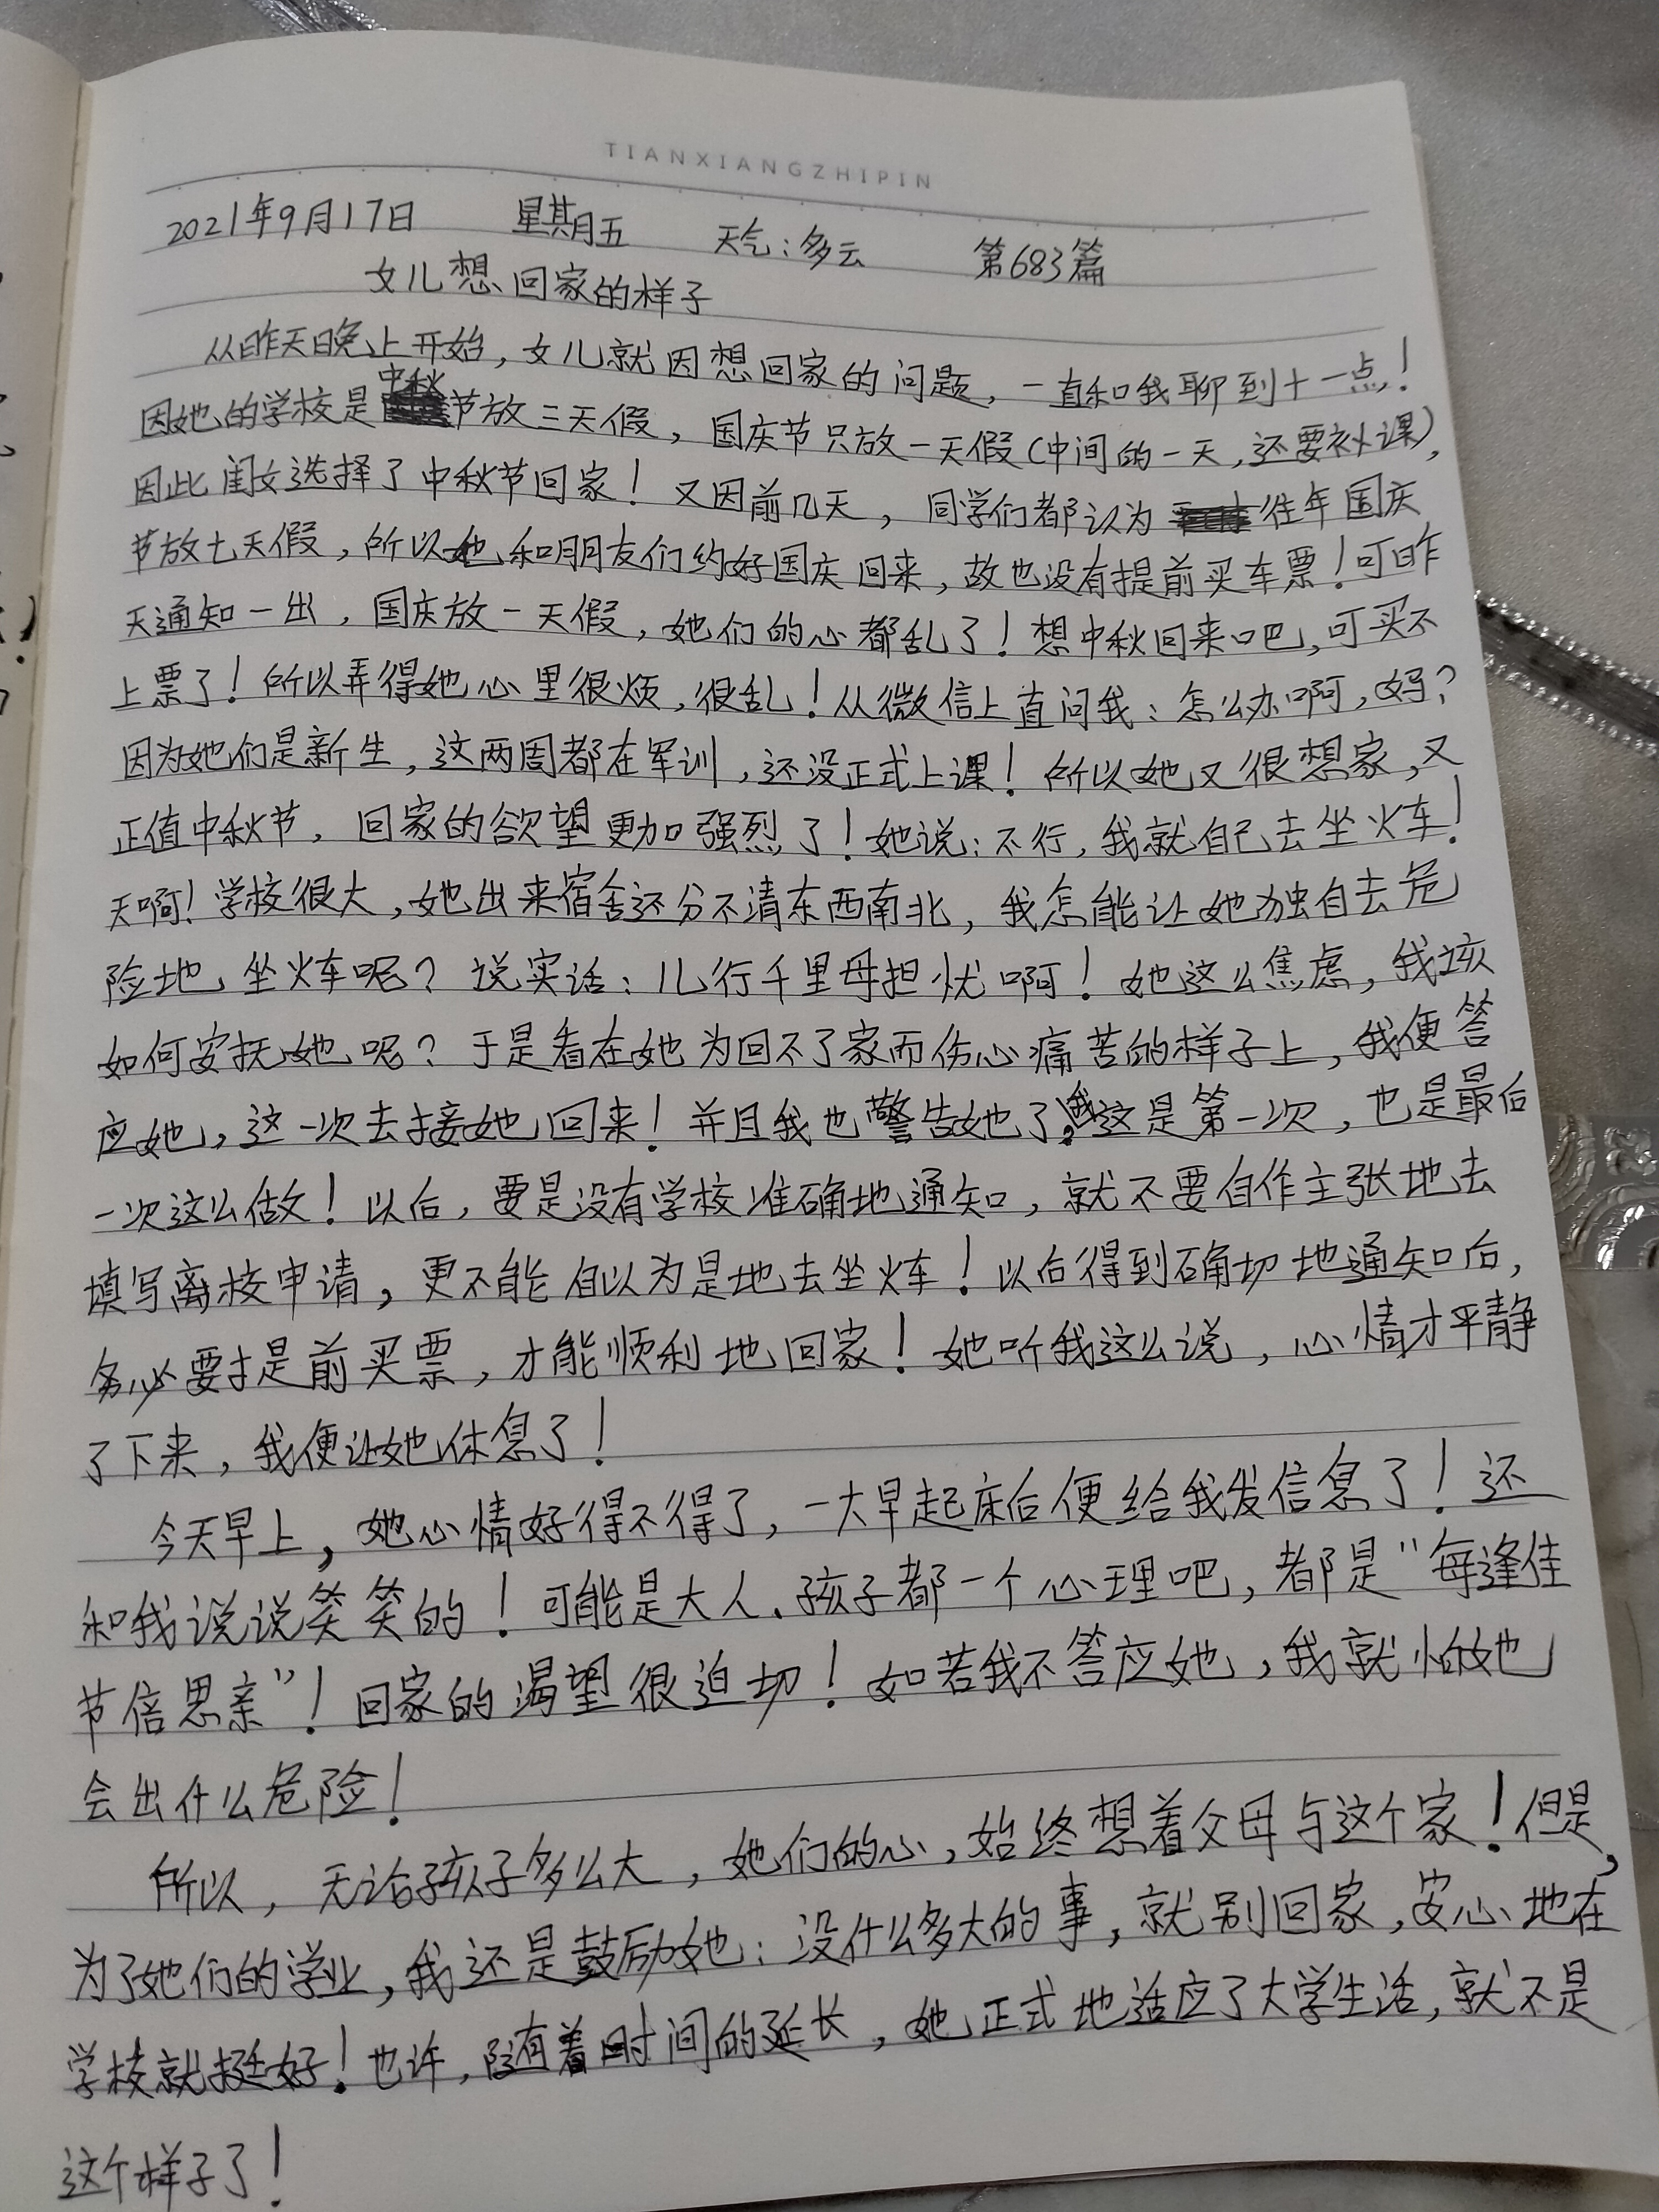 TIANXIANGZHIPIN
2021年9月17日 星期五 天气:多云 第683篇
女儿想回家的样子
从昨天晚上开始,女儿就因想回家的问题,一直和我聊到十一点!
因她的学校是中秋节放三天假,国庆节只放一天假(中间的一天,还要补课),
因此闺女选择了中秋节回家!又因前几天,同学们都认为往年国庆
节放七天假,所以她和朋友们约好国庆回来,故也没有提前买车票!可昨
天通知一出,国庆放一天假,她们的心都乱了!想中秋回来吧,可买不
上票了!所以弄得她心里很烦,很乱!从微信上直问我:怎么办啊,妈?
因为她们是新生,这两周都在军训,还没正式上课!所以她又很想家,又
正值中秋节,回家的欲望更加强烈了!她说:不行,我就自己去坐火车!
天啊!学校很大,她出来宿舍还分不清东西南北,我怎能让她独自去危
险地,坐火车呢?说实话:儿行千里母担忧啊!她这么焦虑,我该
如何安抚她呢?于是看在她为回不了家而伤心痛苦的样子上,我便答
应她,这一次去接她回来!并且我也警告她了,我这是第一次,也是最后
一次这么做!以后,要是没有学校准确地通知,就不要自作主张地去
填写离校申请,更不能自以为是地去坐火车!以后得到确切地通知后,
务必要提前买票,才能顺利地回家!她听我这么说,心情才平静
了下来,我便让她休息了!
今天早上,她心情好得不得了,一大早起床后便给我发信息了!还
和我说说笑笑的!可能是大人、孩子都一个心理吧,都是"每逢佳
节倍思亲"!回家的渴望很迫切!如若我不答应她,我就怕她
会出什么危险!
所以,无论孩子多么大,她们的心,始终想着父母与这个家!但是,
为了她们的学业,我还是鼓励她:没什么多大的事,就别回家,安心地在
学校就挺好!也许,随着时间的延长,她正式地适应了大学生活,就不是
这个样子了!